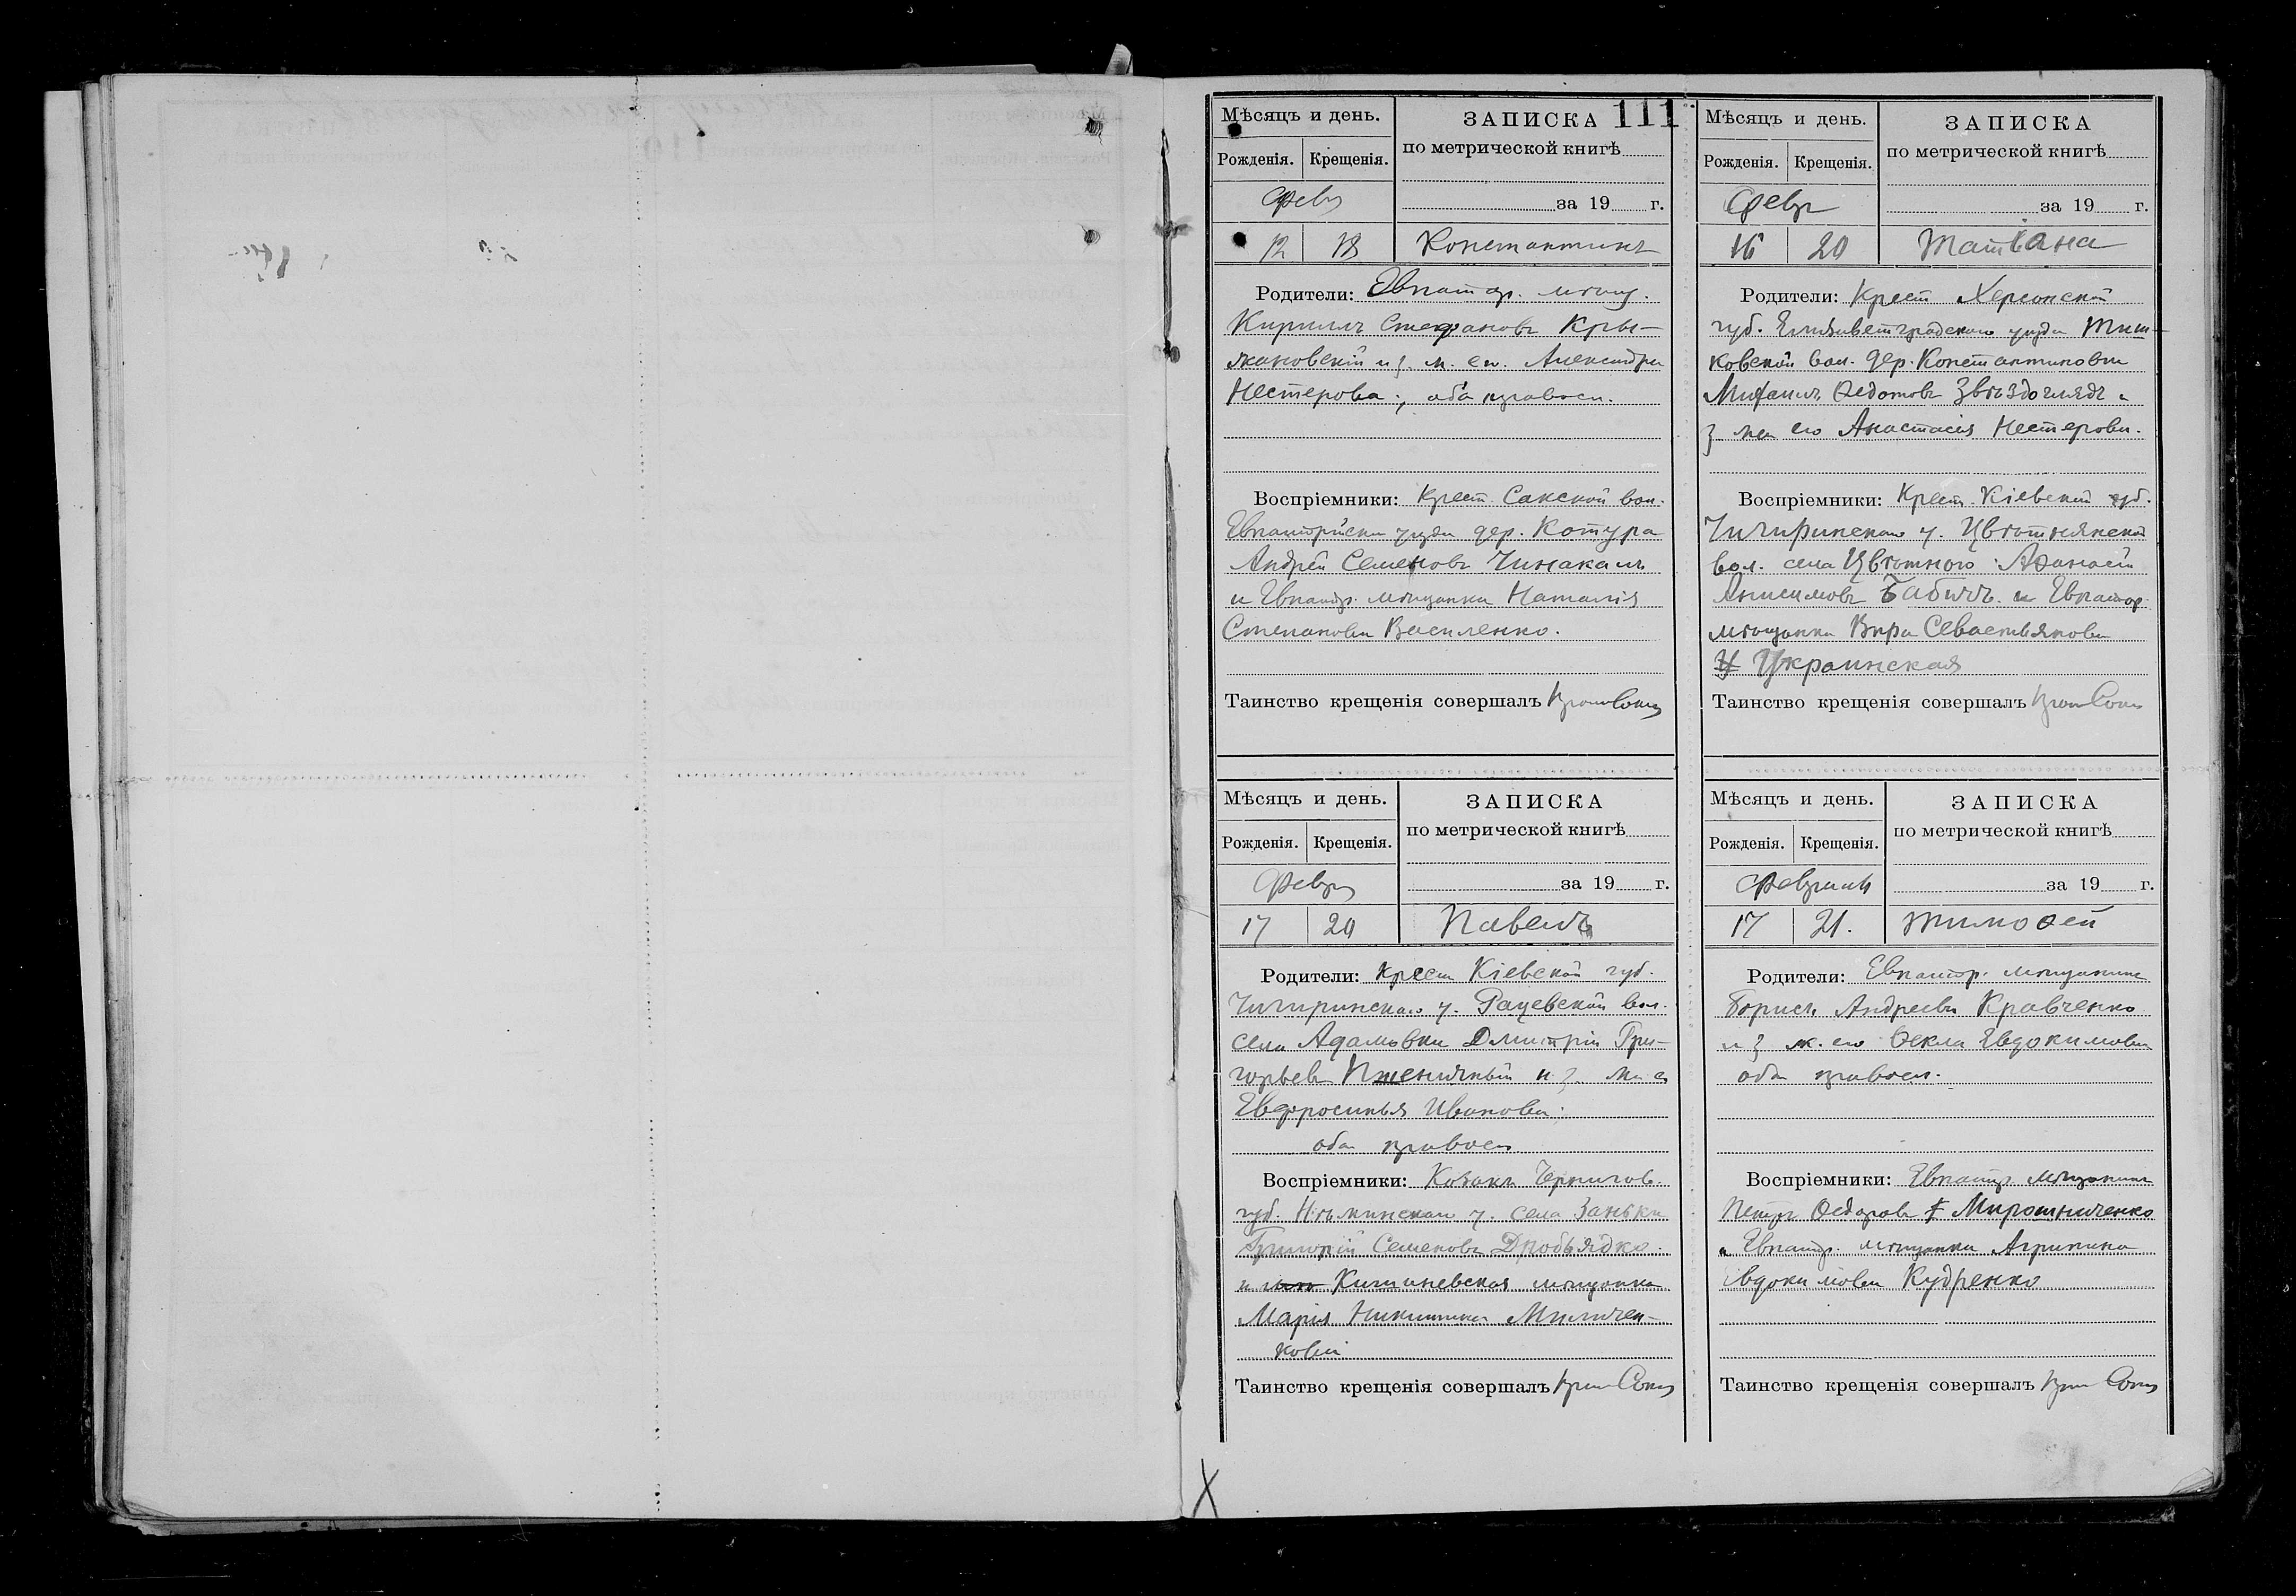 111
Мѣсяцъ и день.
ЗАПИСКА
Рожденія. Крещенія.
по метрической книгѣ
Февр
за 19 г.
12 18 Константинъ
Родители: Евпатор. мѣщ.
Кириллъ Стефановъ Кры-
жановскій и з. ж. его Александра
Нестерова, оба правосл.
Воспріемники: Крест. Сакской вол.
Евпаторійскаго уѣзда дер. Котура
Андрей Семеновъ Чинакалъ
и Евпатор. мѣщанка Наталія
Степанова Василенко.
Таинство крещенія совершалъ
Мѣсяцъ и день.
ЗАПИСКА
Рожденія. Крещенія.
по метрической книгѣ
Февр
за 19 г.
16 20 Татіана
Родители: Крест Херсонской
губ. Елизаветградскаго уѣзда Тиш-
ковской вол. дер. Константиновки
Михаилъ Ѳедотовъ Звѣздоглядъ и
з жена его Анастасія Нестерова.
Воспріемники: Крест. Кіевской губ.
Чигиринскаго у. Цвѣтнянской
вол. села Цвѣтного Аѳанасій
Анисимовъ Бабичъ и Евпатор.
мѣщанка Вѣра Севастьянова
Украинская
Таинство крещенія совершалъ
Мѣсяцъ и день.
ЗАПИСКА
Рожденія. Крещенія.
по метрической книгѣ
Февр
за 19 г.
17 20 Павелъ
Родители: крест Кіевской губ.
Чигиринскаго у. Рацевской вол.
села Адамовки Дмитрій Гри-
горьевъ Пшеничный и з. ж. его
Евфросинья Иванова;
оба правосл
Воспріемники: Козакъ Чернигов.
губ. Нѣжинскаго у. села Заньки
Григорій Семеновъ Дробьядко
и Кишиневская мѣщанка
Марія Никитина
кова
Таинство крещенія совершалъ
Мѣсяцъ и день.
ЗАПИСКА
Рожденія. Крещенія.
по метрической книгѣ
Февраль
за 19 г.
17 21. Тимоѳей
Родители: Евпатор. мѣщанинъ
Борисъ Андреевъ Кравченко
и з ж. его Ѳекла Евдокимова
оба правосл.
Воспріемники: Евпатор мѣщанинъ
Петръ Ѳедоровъ Мирошниченко
и Евпатор. мѣщанка Агрипина
Евдокимова Кудренко
Таинство крещенія совершалъ